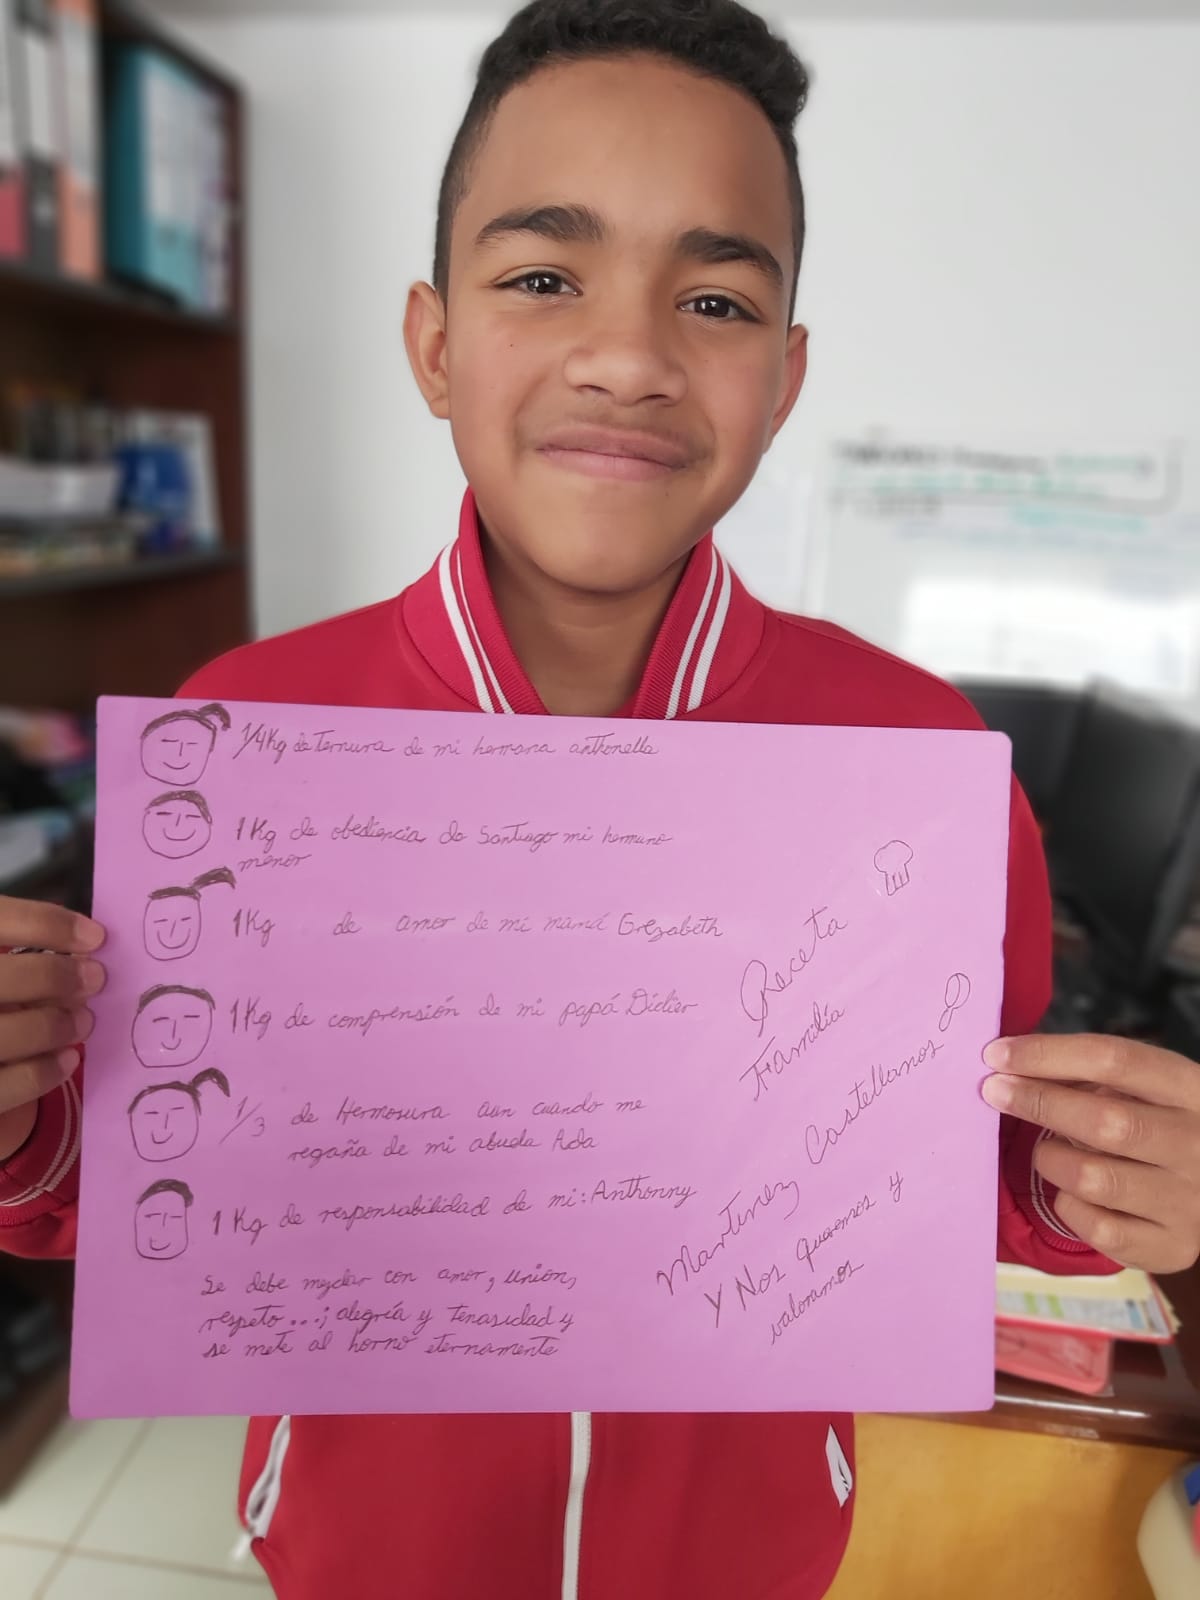 1/4Kg de Ternura de mi hermana anthonella
1 Kg de obediencia de Santiago mi hermano
menor
1Kg de amor de mi mamá Grezabeth
1Kg de comprensión de mi papá Didier
1/3 de Hermosura aun cuando me
regaña de mi abuela Ada
1 Kg de responsabilidad de mi: Anthonny
Se debe mezclar con amor, union,
respeto...; alegría y tenasidad y
se mete al horno eternamente
Receta
Familia
Martinez Castellanos
Y Nos queremos y
valoramos